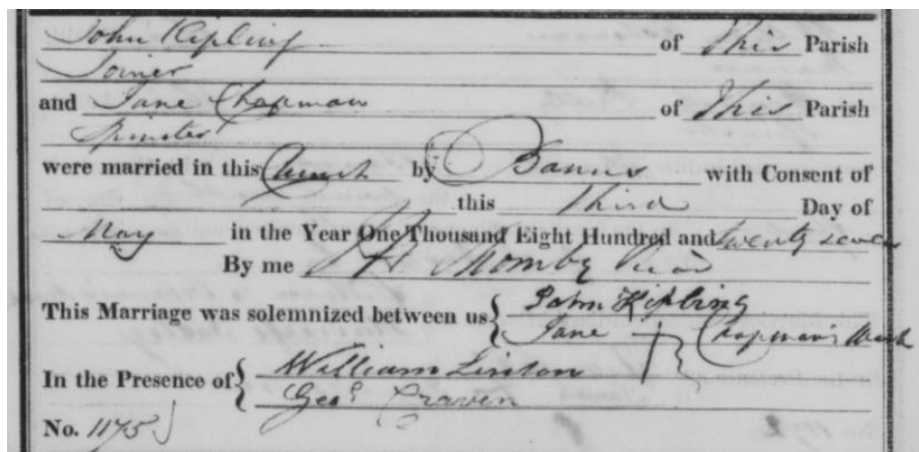 John Kipling of This Parish
Joiner
and Jane Chapman of This Parish
Spinster
were married in this Church by Banns with Consent of
this third Day of
May in the Year One Thousand Eight Hundred and twenty seven
By me Momby
This Marriage was solemnized between us John Kipling
Jane + Chapman's Mark
In the Presence of William Linton
Geo. Craven
No. 1175